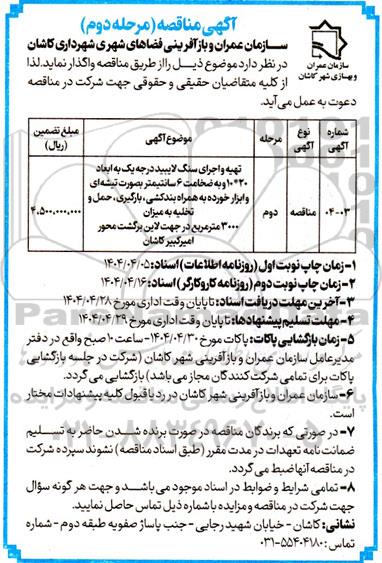 آگهی مناقصه (مرحله دوم)
سازمان عمران و بازآفرینی فضاهای شهری شهرداری کاشان
در نظر دارد موضوع ذیل را از طریق مناقصه واگذار نماید. لذا
از کلیه متقاضیان حقیقی و حقوقی جهت شرکت در مناقصه
دعوت به عمل می‌آید.
سازمان عمران
و بهسازی شهر کاشان
شماره آگهی نوع آگهی مرحله موضوع آگهی مبلغ تضمین (ریال)
۰۴-۰۳ مناقصه دوم
تهیه و اجرای سنگ لایبید درجه یک به ابعاد
۲۰*۱۰ و به ضخامت ۶ سانتیمتر بصورت تیشه‌ای
و ابزار خورده به همراه بندکشی، بارگیری، حمل و
تخلیه به میزان
۳۰۰۰ مترمربع در جهت لاین برگشت محور
امیرکبیر کاشان
۴,۵۰۰,۰۰۰,۰۰۰
۱- زمان چاپ نوبت اول (روزنامه اطلاعات) اسناد: ۱۴۰۴/۰۴/۰۵
۲- زمان چاپ نوبت دوم (روزنامه کاروکارگر) اسناد: ۱۴۰۴/۰۴/۱۶
۳- آخرین مهلت دریافت اسناد: تا پایان وقت اداری مورخ ۱۴۰۴/۰۴/۲۸
۴- مهلت تسلیم پیشنهادها: تا پایان وقت اداری مورخ ۱۴۰۴/۰۴/۲۹
۵- زمان بازگشایی پاکات: پاکات مورخ ۱۴۰۴/۰۴/۳۰- ساعت ۱۰ صبح واقع در دفتر
مدیرعامل سازمان عمران و بازآفرینی شهر کاشان (شرکت در جلسه بازگشایی
پاکات برای تمامی شرکت کنندگان مجاز می‌باشد) بازگشایی می گردد.
۶- سازمان عمران و بازآفرینی شهر کاشان در رد یا قبول کلیه پیشنهادات مختار
است.
۷- در صورتی که برندگان مناقصه در صورت برنده شدن حاضر به تسلیم
ضمانت نامه تعهدات در مدت مقرر (طبق اسناد مناقصه) نشوند سپرده شرکت
در مناقصه آنها ضبط می گردد.
۸- تمامی شرایط و ضوابط در اسناد موجود می‌باشد و جهت هر گونه سؤال
جهت شرکت در مناقصه و مزایده با شماره ذیل تماس حاصل نمایید.
نشانی: کاشان - خیابان شهید رجایی - جنب پاساژ صفویه طبقه دوم - شماره
تماس: ۵۵۴۰۴۱۸۰-۰۳۱